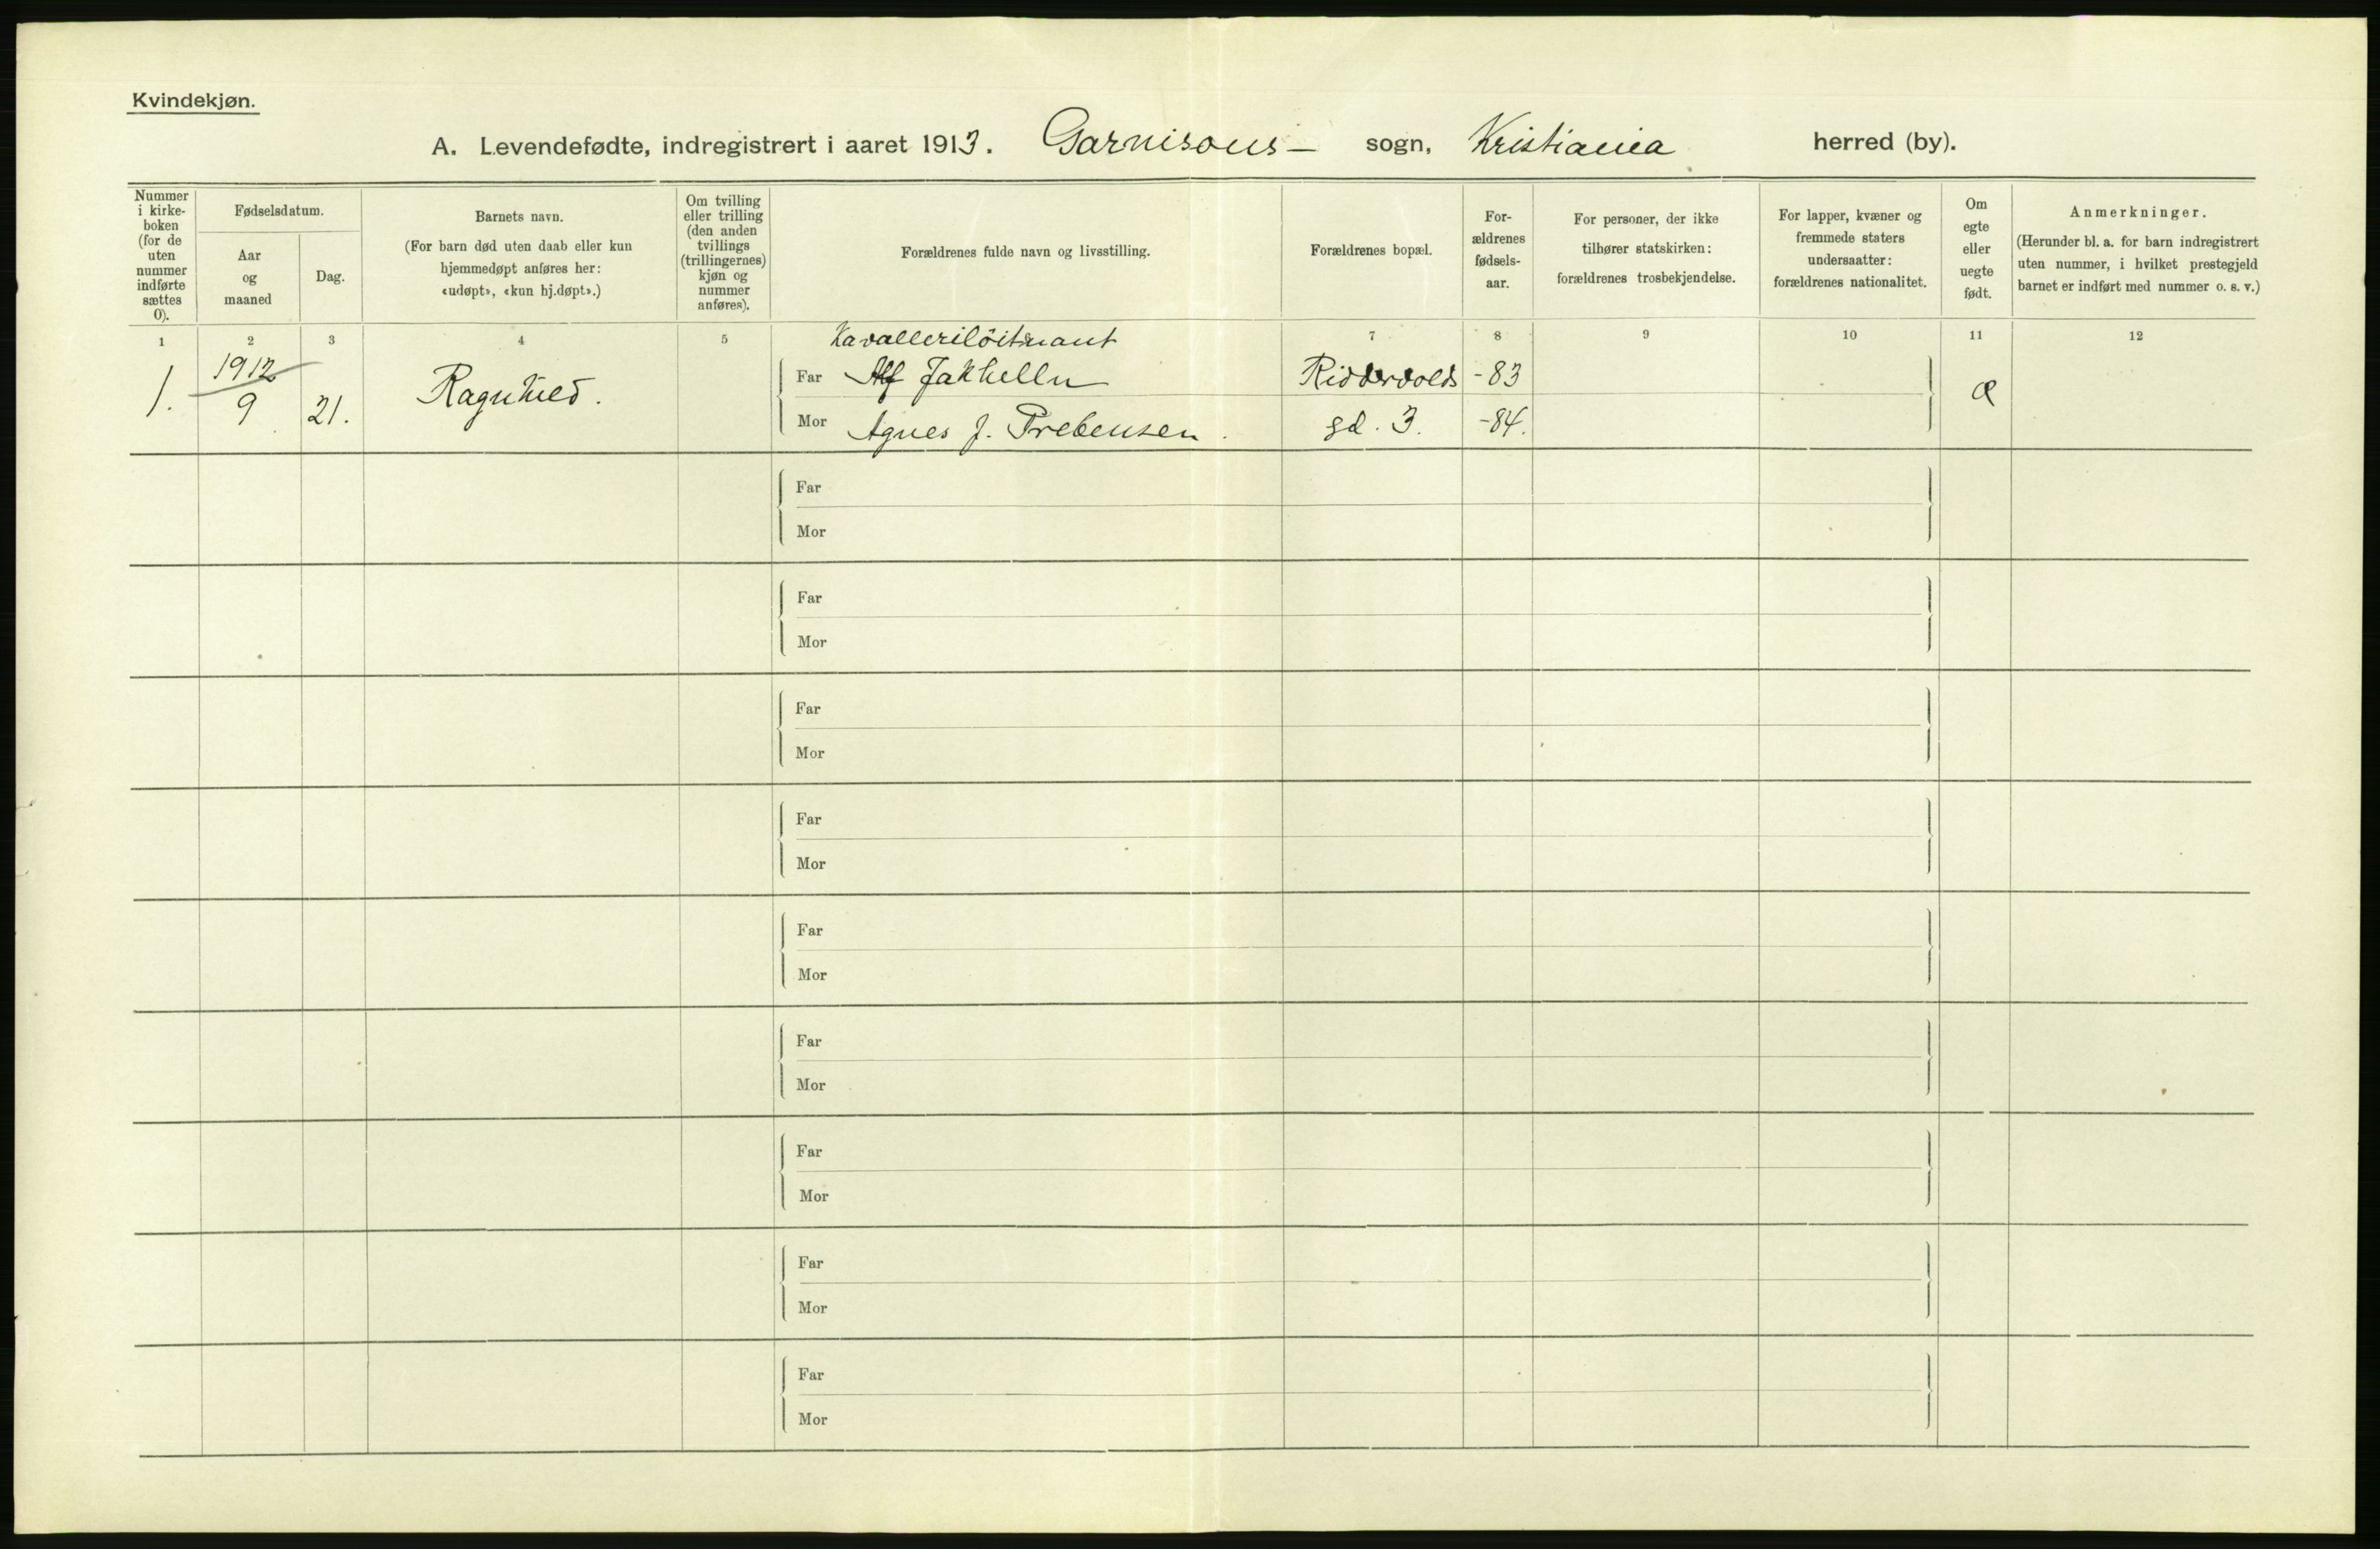 Kvindekjøn.
A. Levendefødte, indregistrert i aaret 1913. Garnisons- sogn, Kristiania herred (by).
Nummer
i kirke-
boken
(for de
uten
nummer
indførte
sættes
0).
Fødselsdatum.
Aar
og
maaned
Dag.
Barnets navn.
(For barn død uten daab eller kun
hjemmedøpt anføres her:
«udøpt», «kun hj.døpt».)
Om tvilling
eller trilling
(den anden
tvillings
(trillingernes)
kjøn og
nummer
anføres).
Forældrenes fulde navn og livsstilling.
Forældrenes bopæl.
For-
ældrenes
fødsels-
aar.
For personer, der ikke
tilhører statskirken:
forældrenes trosbekjendelse.
For lapper, kvæner og
fremmede staters
undersaatter:
forældrenes nationalitet.
Om
egte
eller
uegte
født.
Anmerkninger.
(Herunder bl. a. for barn indregistrert
uten nummer, i hvilket prestegjeld
barnet er indført med nummer o. s. v.)
1 2 3 4 5 7 8 9 10 11 12
Kavallerilöitnant
1. 1912 9 21. Ragnhild.
Far Alf Jakhelln Ridderdvolds -83
Mor Agnes J. Prebensen. gd. 3. -84.
Æ
Far
Mor
Far
Mor
Far
Mor
Far
Mor
Far
Mor
Far
Mor
Far
Mor
Far
Mor
Far
Mor